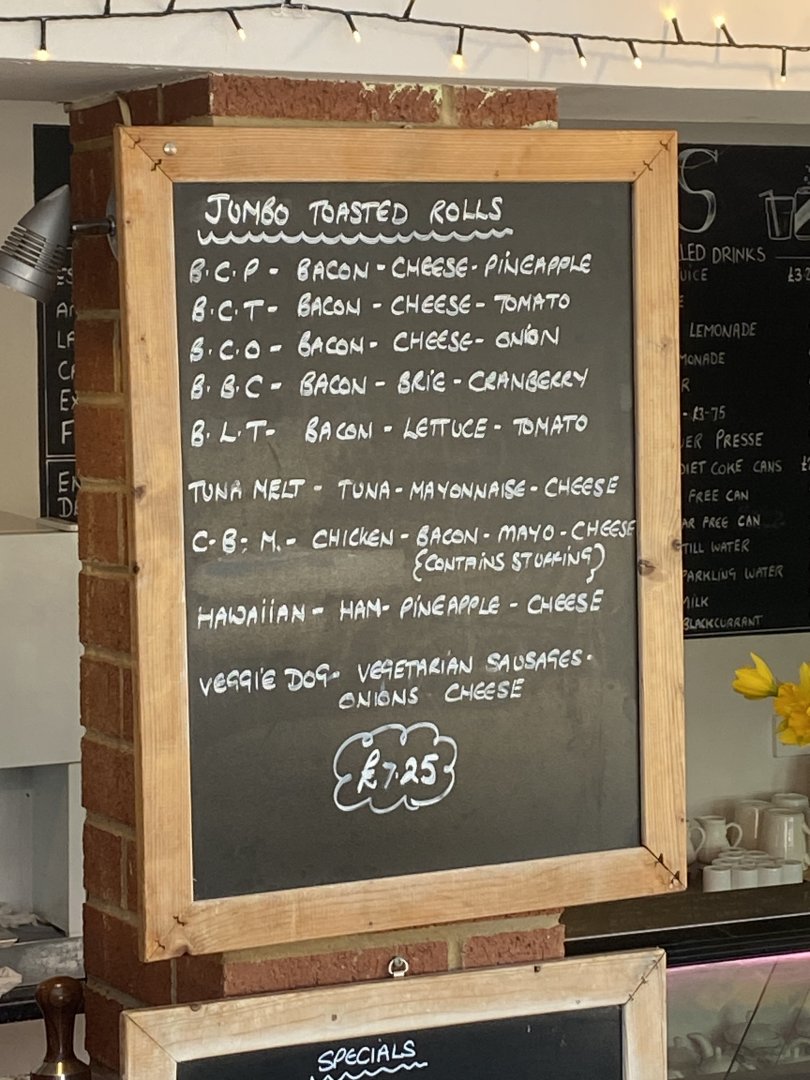 JUMBO TOASTED ROLLS
B.C.P - BACON - CHEESE - PINEAPPLE
B.C.T - BACON - CHEESE - TOMATO
B.C.O - BACON - CHEESE - ONION
B.B.C - BACON - BRIE - CRANBERRY
B.L.T - BACON - LETTUCE - TOMATO
TUNA MELT - TUNA - MAYONNAISE - CHEESE
C.B.M. - CHICKEN - BACON - MAYO - CHEESE
{CONTAINS STUFFING}
HAWAIIAN - HAM - PINEAPPLE - CHEESE
VEGGIE DOG - VEGETARIAN SAUSAGES -
ONIONS CHEESE
£7.25
SPECIALS
S
LED DRINKS
UICE £3.2
E
LEMONADE
MONADE
R
- £3-75
ER PRESSE
DIET COKE CANS
FREE CAN
AR FREE CAN
TILL WATER
PARKLING WATER
MILK
BLACKCURRANT